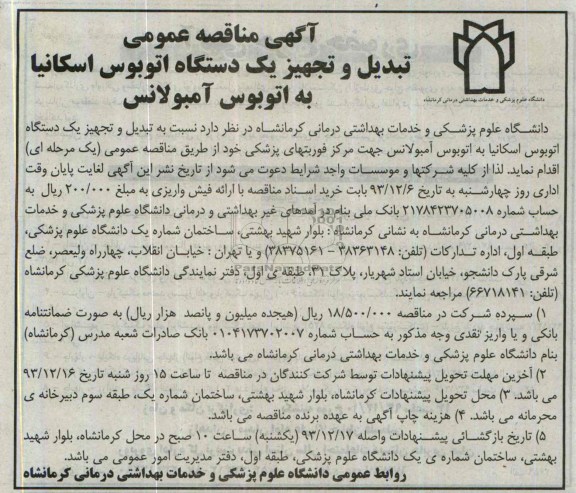 آگهی مناقصه عمومی
تبدیل و تجهیز یک دستگاه اتوبوس اسکانیا
به اتوبوس آمبولانس
دانشگاه علوم پزشکی و خدمات بهداشتی درمانی کرمانشاه
دانشگاه علوم پزشکی و خدمات بهداشتی درمانی کرمانشاه در نظر دارد نسبت به تبدیل و تجهیز یک دستگاه
اتوبوس اسکانیا به اتوبوس آمبولانس جهت مرکز فوریتهای پزشکی خود از طریق مناقصه عمومی (یک مرحله ای)
اقدام نماید. لذا از کلیه شرکتها و موسسات واجد شرایط دعوت می شود از تاریخ نشر این آگهی لغایت پایان وقت
اداری روز چهارشنبه به تاریخ ۹۳/۱۲/۶ بابت خرید اسناد مناقصه با ارائه فیش واریزی به مبلغ ۲۰۰/۰۰۰ ریال به
حساب شماره ۲۱۷۸۴۲۳۷۰۵۰۰۸ بانک ملی بنام درآمدهای غیر بهداشتی و درمانی دانشگاه علوم پزشکی و خدمات
بهداشتی درمانی کرمانشاه به نشانی کرمانشاه : بلوار شهید بهشتی، ساختمان شماره یک دانشگاه علوم پزشکی،
طبقه اول، اداره تدارکات (تلفن: ۳۸۳۶۳۱۴۸ - ۳۸۳۷۵۱۶۱) و یا تهران : خیابان انقلاب، چهارراه ولیعصر، ضلع
شرقی پارک دانشجو، خیابان استاد شهریار، پلاک ۲۱، طبقه ی اول، دفتر نمایندگی دانشگاه علوم پزشکی کرمانشاه
(تلفن: ۶۶۷۱۸۱۴۱) مراجعه نمایند.
۱) سپرده شرکت در مناقصه ۱۸/۵۰۰/۰۰۰ ریال (هیجده میلیون و پانصد هزار ریال) به صورت ضمانتنامه
بانکی و یا واریز نقدی وجه مذکور به حساب شماره ۰۱۰۴۱۷۳۷۰۲۰۰۷ بانک صادرات شعبه مدرس (کرمانشاه)
بنام دانشگاه علوم پزشکی و خدمات بهداشتی درمانی کرمانشاه می باشد.
۲) آخرین مهلت تحویل پیشنهادات توسط شرکت کنندگان در مناقصه تا ساعت ۱۵ روز شنبه تاریخ ۹۳/۱۲/۱۶
می باشد. ۳) محل تحویل پیشنهادات کرمانشاه، بلوار شهید بهشتی، ساختمان شماره یک، طبقه سوم دبیرخانه ی
محرمانه می باشد. ۴) هزینه چاپ آگهی به عهده برنده مناقصه می باشد.
۵) تاریخ بازگشائی پیشنهادات واصله ۹۳/۱۲/۱۷ (یکشنبه) ساعت ۱۰ صبح در محل کرمانشاه، بلوار شهید
بهشتی، ساختمان شماره ی یک دانشگاه علوم پزشکی، طبقه اول، دفتر مدیریت امور عمومی می باشد.
روابط عمومی دانشگاه علوم پزشکی و خدمات بهداشتی درمانی کرمانشاه